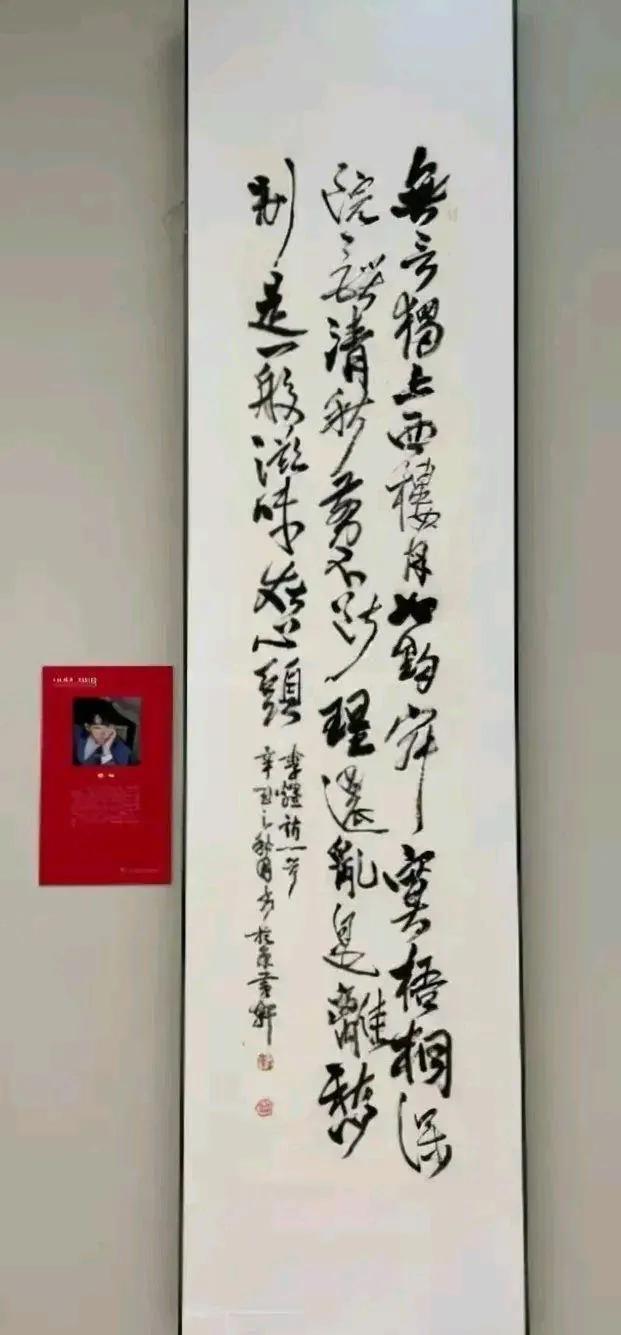 無言獨上西樓月如鉤寂寞梧桐深
院鎖清秋剪不斷理還亂是離愁
別是一般滋味在心頭
李煜詞一首
辛丑之秋月書於京軒